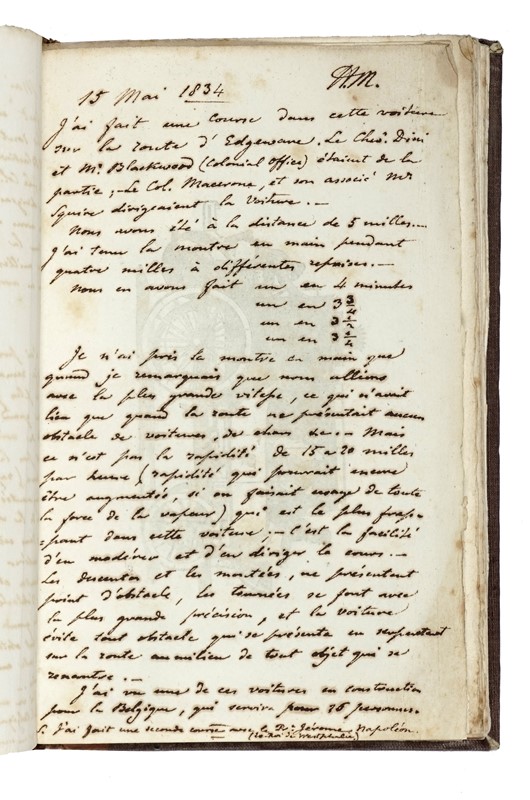 15 Mai 1834
J'ai fait une course dans cette voiture
sur la route d'Edgeware. Le Chev. Dini
et Mr. Blackwood (Colonial Office) étaient de la
partie ;- Le Col. Macerona, et son associé Mr
Squire dirigeaient la voiture. -
Nous avons été à la distance de 5 milles. -
J'ai tenu la montre en main pendant
quatre milles à différentes reprises. -
Nous en avons fait un en 4 minutes
un en 3 3/4
un en 3 1/2
un en 3 1/4
Je n'ai pris la montre en main que
quand je remarquais que nous allions
avec la plus grande vitesse, ce qui n'avait
lieu que quand la route ne présentait aucun
obstacle de voitures, de chars - Mais
ce n'est pas la rapidité de 15 a 20 milles
par heure (rapidité qui pourrait encore
être augmentée, si on faisait usage de toute
la force de la vapeur) qui est le plus frap-
=pant dans cette voiture, - c'est la facilité
d'en modérer et d'en diriger le cours. -
Les descentes et les montées, ne présentent
point d'obstacle, les tournées se font avec
la plus grande précision, et la voiture
évite tout obstacle qui se présente en serpentant
sur la route au milieu de tout objet qui se
rencontre. -
J'ai vu une de ces voitures en construction
pour la Belgique, qui servira pour 36 personnes.
J'ai fait une seconde course avec le Pr. Jérome Napoléon.
(Ex-Roi de Westphalie)